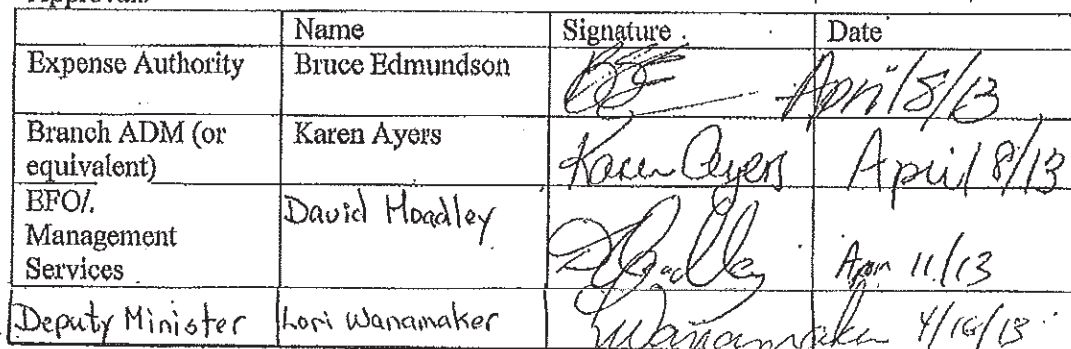 Name Signature Date
Expense Authority Bruce Edmundson April 8/13
Branch ADM (or
equivalent) Karen Ayers Karen Ayers April 8/13
EFO/.
Management
Services David Hoadley Apr 11/13
Deputy Minister Lori Wanamaker LWanamaker 4/16/13